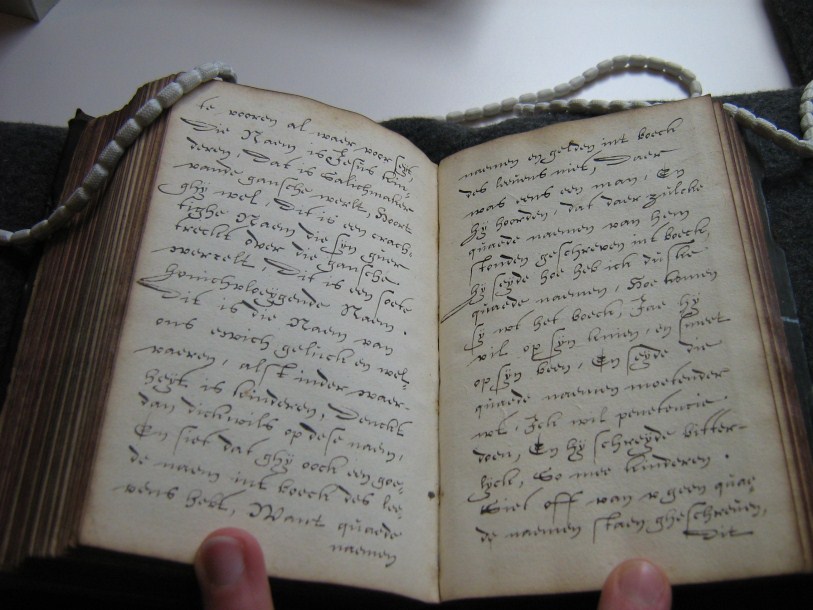 te vooren al waer voor seyt,
Die Naem is Jesus kin-
deren, Dat is Salichmaker
vande gansche werlt, Hoort
ghy wel, Dit is een crach-
tighe Naem die syn
treckt over die gansche
werrelt, Dit is een soete
honichvloeygende Naem.
Dit is die Naem van
ons ewich geluck en wel-
vaeren, alst inder waer-
heyt is kinderen, Denckt
dan dickwils op dese naem,
En siet dat ghy oock een goe-
de naem int boeck des lee-
vens hebt, Want quaede
naemen
naemen en gelden int boeck
des leevens niet, Daer
was eens een man, En
hy hoorden, dat daer zulcke
quaede naemen van hem
stonden geschreven int boeck,
hy seyde hoe heb ick dusske
quaede naemen, Hoe komen
sy wt het boeck, Jae hy
viel op syn knien, en smeet
op syn been, En seyde die
quaede naemen moetender
wt, Ick wil penetencie
doen, En hy schreyde bitter-
lyck, So mee kinderen.
Siet off van v geen quae-
de naemen staen gheschreven,
Dit